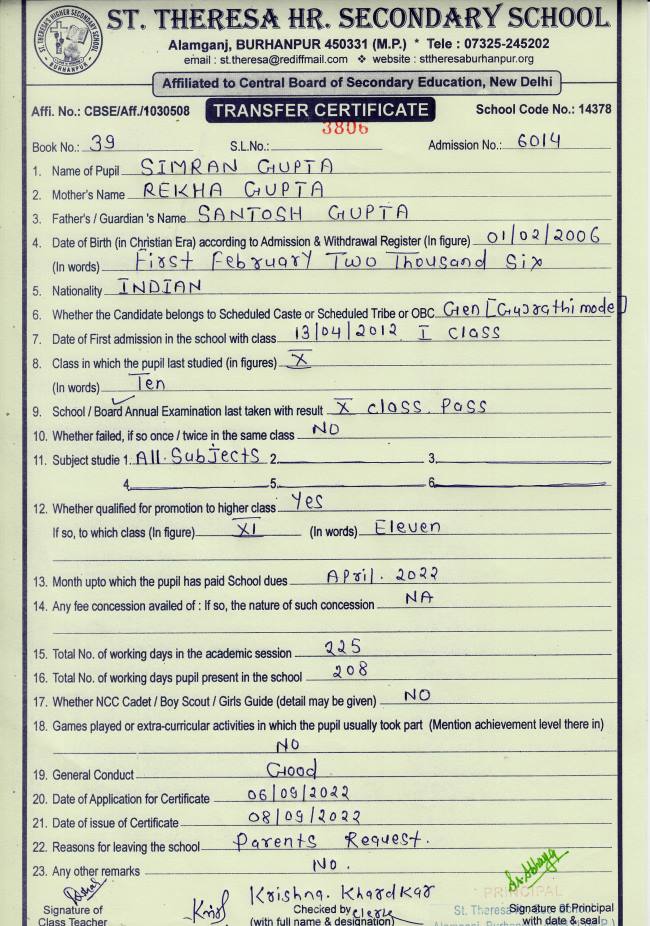 ST. THERESA HR. SECONDARY SCHOOL
Alamganj, BURHANPUR 450331 (M.P.) * Tele : 07325-245202
email : st.theresa@rediffmail.com ❖ website : sttheresaburhanpur.org
Affiliated to Central Board of Secondary Education, New Delhi
Affi. No.: CBSE/Aff./1030508 TRANSFER CERTIFICATE School Code No.: 14378
3806
Book No.: 39 S.L.No.: Admission No.: 6014
1. Name of Pupil SIMRAN GUPTA
2. Mother's Name REKHA GUPTA
3. Father's / Guardian 's Name SANTOSH GUPTA
4. Date of Birth (in Christian Era) according to Admission & Withdrawal Register (In figure) 01/02/2006
(In words) First February Two Thousand Six
5. Nationality INDIAN
6. Whether the Candidate belongs to Scheduled Caste or Scheduled Tribe or OBC Gen [Gujrathi mode]
7. Date of First admission in the school with class 13/04/2012 I class
8. Class in which the pupil last studied (in figures) X
(In words) Ten
9. School / Board Annual Examination last taken with result X class. Pass
10. Whether failed, if so once / twice in the same class NO
11. Subject studie 1. All. Subjects 2. 3.
4. 5. 6.
12. Whether qualified for promotion to higher class Yes
If so, to which class (In figure) XI (In words) Eleven
13. Month upto which the pupil has paid School dues April. 2022
14. Any fee concession availed of : If so, the nature of such concession NA
15. Total No. of working days in the academic session 225
16. Total No. of working days pupil present in the school 208
17. Whether NCC Cadet / Boy Scout / Girls Guide (detail may be given) NO
18. Games played or extra-curricular activities in which the pupil usually took part (Mention achievement level there in)
NO
19. General Conduct Good
20. Date of Application for Certificate 06/09/2022
21. Date of issue of Certificate 08/09/2022
22. Reasons for leaving the school Parents Request.
23. Any other remarks No.
Krishna. Khardkar
PRINCIPAL
Signature of Checked by clerk St. Theresa Signature of Principal
Class Teacher (with full name & designation) with date & seal